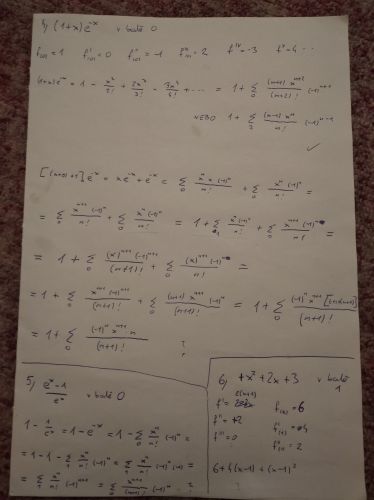 4) (1+x)e^{-x} v bodě 0
f(0)=1 f'(0)=0 f''(0)=-1 f'''(0)=2 f^{IV}=-3 f^{V}=4 ...
(1+x)e^{-x} = 1 - x²/2! + 2x³/3! - 3x⁴/4! + ... = 1 + ∑_0 (n+1) x^{n+2}/(n+2)! (-1)^{n+1}
NEBO 1 + ∑_2 (n-1) x^n/n! (-1)^{n-1}
✓
[(x+1)]e^{-x} = xe^{-x} + e^{-x} = ∑_0 x^n x (-1)^n/n! + ∑_0 x^n (-1)^n/n! =
= ∑_0 x^{n+1} (-1)^n/n! + ∑_0 x^n (-1)^n/n! = 1 + ∑_1 x^n (-1)^n/n! + ∑_0 x^{n+1} (-1)^n/n! =
= 1 + ∑_0 (x)^{n+1} (-1)^{n+1}/(n+1)! + ∑_0 (x)^{n+1} (-1)^n/n! =
= 1 + ∑_0 x^{n+1} (-1)^{n+1}/(n+1)! + ∑_0 (n+1) x^{n+1} (-1)^n/(n+1)! = 1 + ∑_0 (-1)^n x^{n+1}
= 1 + ∑_0 (-1)^n x^{n+1} n/(n+1)! ?
5) e^x-1/e^x v bodě 0
1 - 1/e^x = 1 - e^{-x} = 1 - ∑_0 x^n/n! (-1)^n =
= 1 - 1 - ∑_1 x^n/n! (-1)^n = ∑_1 x^n/n! (-1)^n (-1) =
= ∑_1 x^n/n! (-1)^{n+1} = ∑_0 x^{n+1}/(n+1)! (-1)^n ?
6) +x²+2x+3 v bodě 1
f' = f(1) = 6
f'' = +2 f'(1) = 4
f''' = 0 f''(1) = 2
6+4(x-1)+(x-1)²